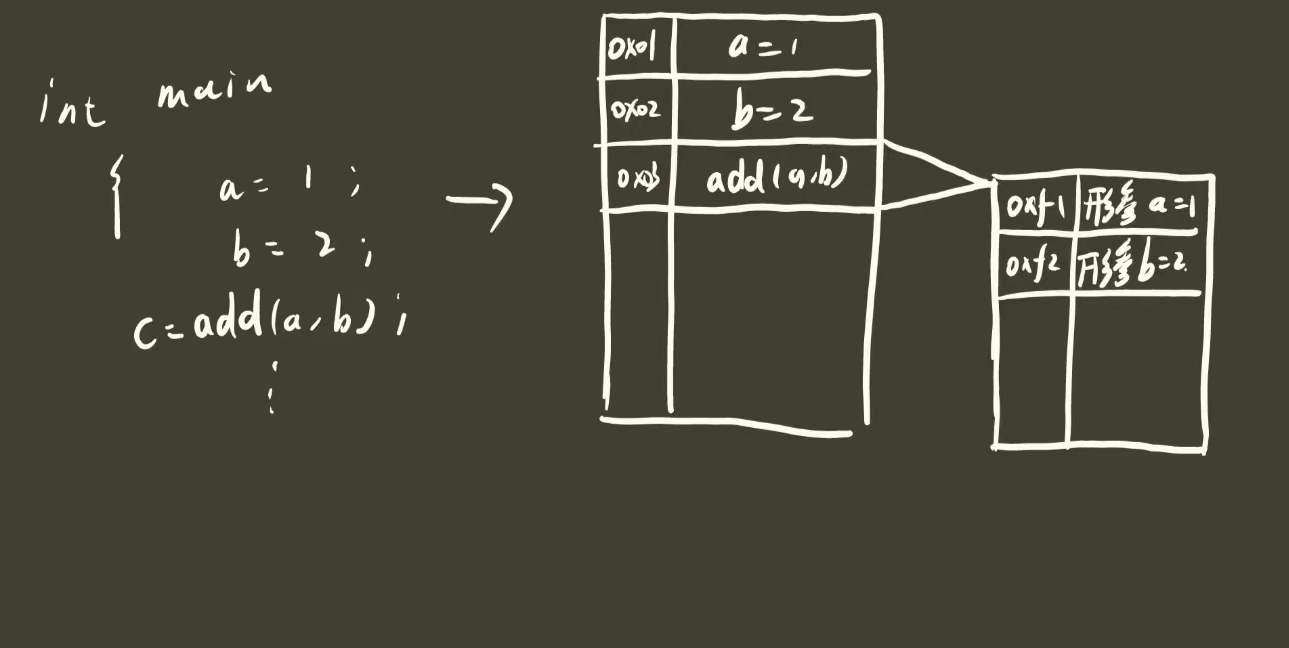 int main
{
a = 1 ;
b = 2 ;
c = add(a, b) ;
⋮
→
0x01 a = 1
0x02 b = 2
0x03 add(a,b)
0xf1 形参 a=1
0xf2 形参 b=2.